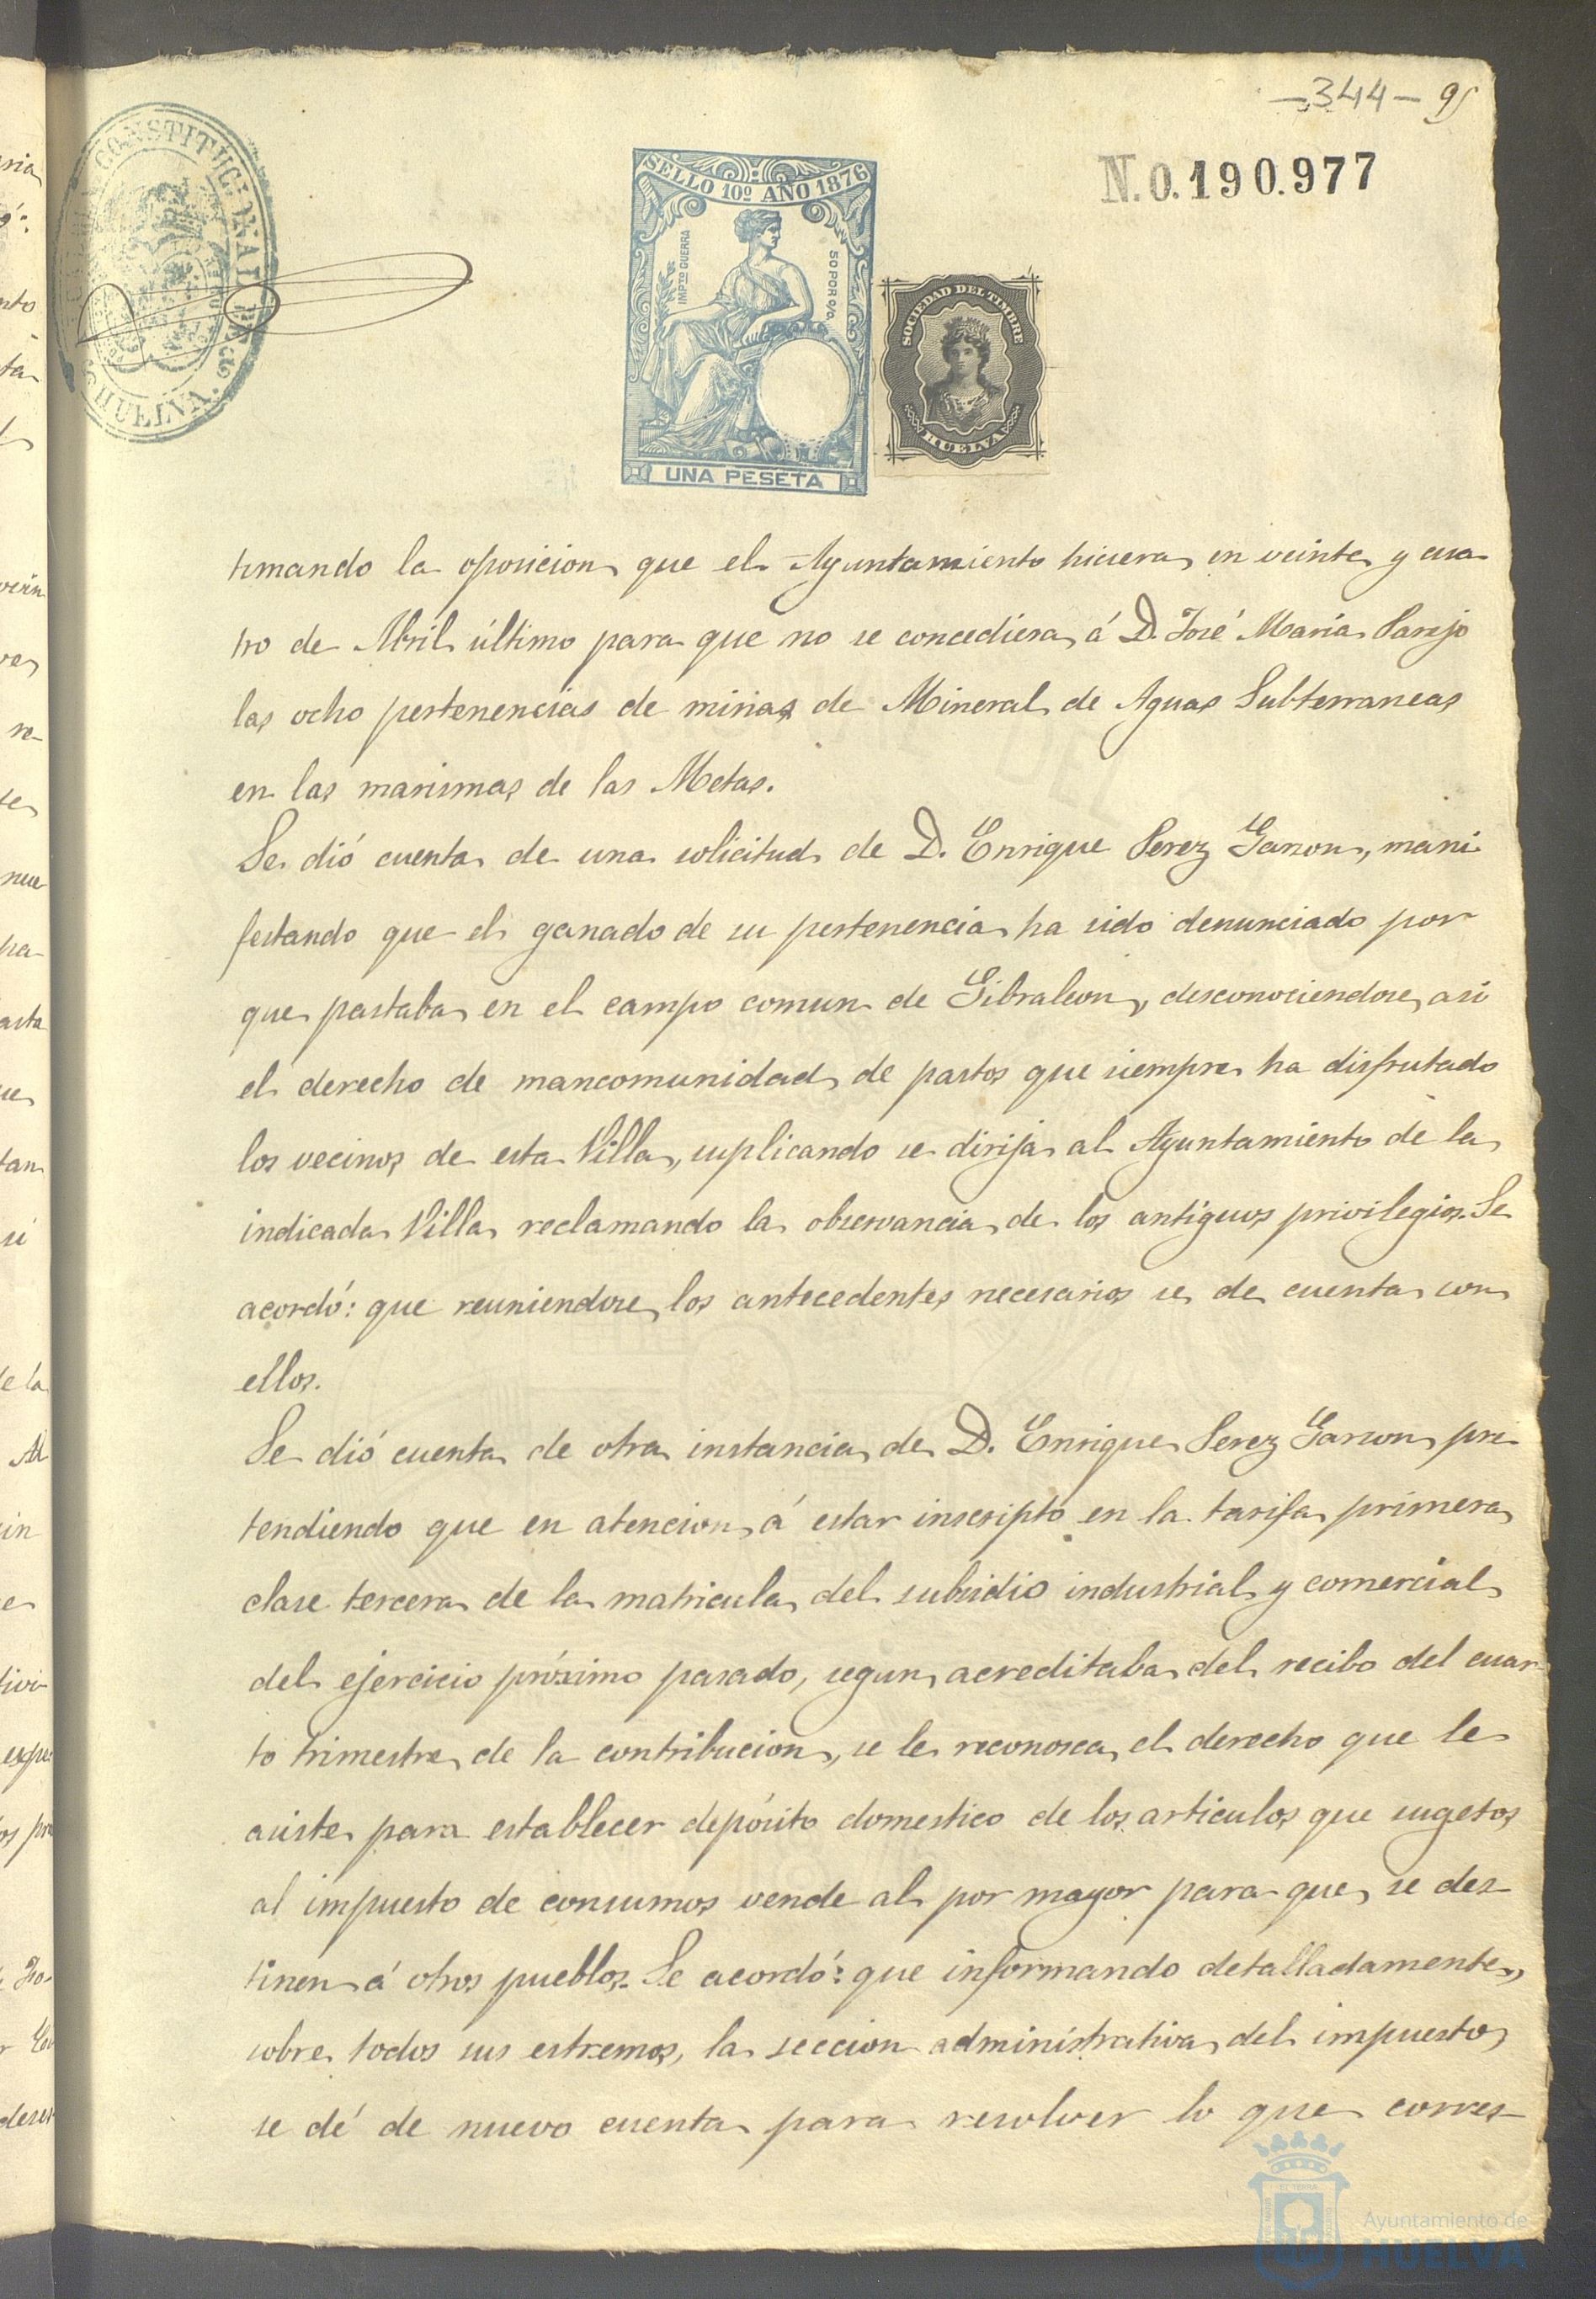 -344- 95
N.0.190.977
CONSTITUCIONAL DE
HUELVA.
SELLO 10º AÑO 1876
IMPTO GUERRA
50 POR 0/0.
UNA PESETA
SOCIEDAD DEL TIMBRE
HUELVA
timando la oposicion que el Ayuntamiento hiciera en veinte y cua
tro de Abril último para que no se concediera á D. José María Parejo
las ocho pertenencias de minas de Mineral de Aguas Subterraneas
en las marismas de las Metas.
Se dió cuenta de una solicitud de D. Enrique Perez Garzon, mani
festando que el ganado de su pertenencia ha sido denunciado por
que pastaba en el campo comun de Gibraleon, desconociendose asi
el derecho de mancomunidad de pastos que siempre ha disfrutado
los vecinos de esta Villa, suplicando se dirija al Ayuntamiento de la
indicada Villa reclamando la observancia de los antiguos privilegios. Se
acordó: que reuniendose los antecedentes necesarios se de cuenta con
ellos.
Se dió cuenta de otra instancia de D. Enrique Perez Garzon pre
tendiendo que en atencion á estar inscripto en la tarifa primera
clase tercera de la matricula del subsidio industrial y comercial
del ejercicio próximo pasado, segun acreditaba del recibo del cuar
to trimestre de la contribucion, se le reconosca el derecho que le
asiste para establecer depósito domestico de los articulos que sugetos
al impuesto de consumos vende al por mayor para que se des-
tinen á otros pueblos. Se acordó: que informando detalladamente,
sobre todos sus estremos, la seccion administrativa del impuesto,
se dé de nuevo cuenta para resolver lo que corres-
Ayuntamiento de
HUELVA